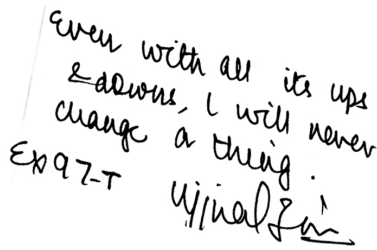 Even with all its ups
& downs, I will never
change a thing.
Exp 97-T